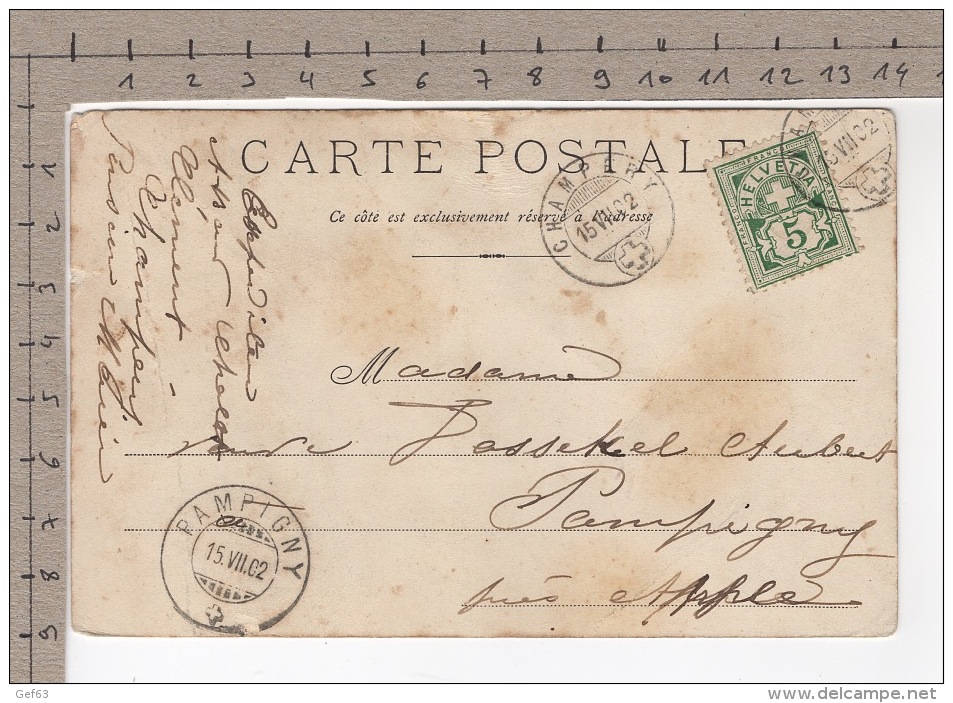 1 2 3 4 5 6 7 8 9 10 11 12 13 14
1 2 3 4 5 6 7 8 9
CARTE POSTALE
Ce côté est exclusivement réservé à l'adresse
CHAMPERY
15 VII 02
15 VII 02
FRANCO
HELVETIA
5
Madame
Aubert
Pampigny
près Apples
PAMPIGNY
15.VII.02
Clément
à
Champéry
Gef63
delcampe.net